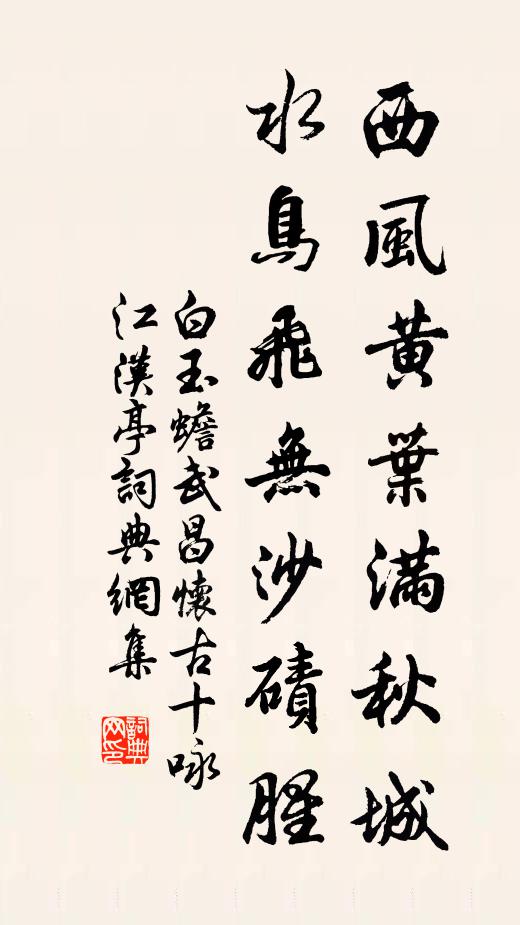 西風黃葉滿秋城
水鳥飛無沙磧腥
白玉蟾武昌懷古十咏
江漢亭詞典網集
詞典網印